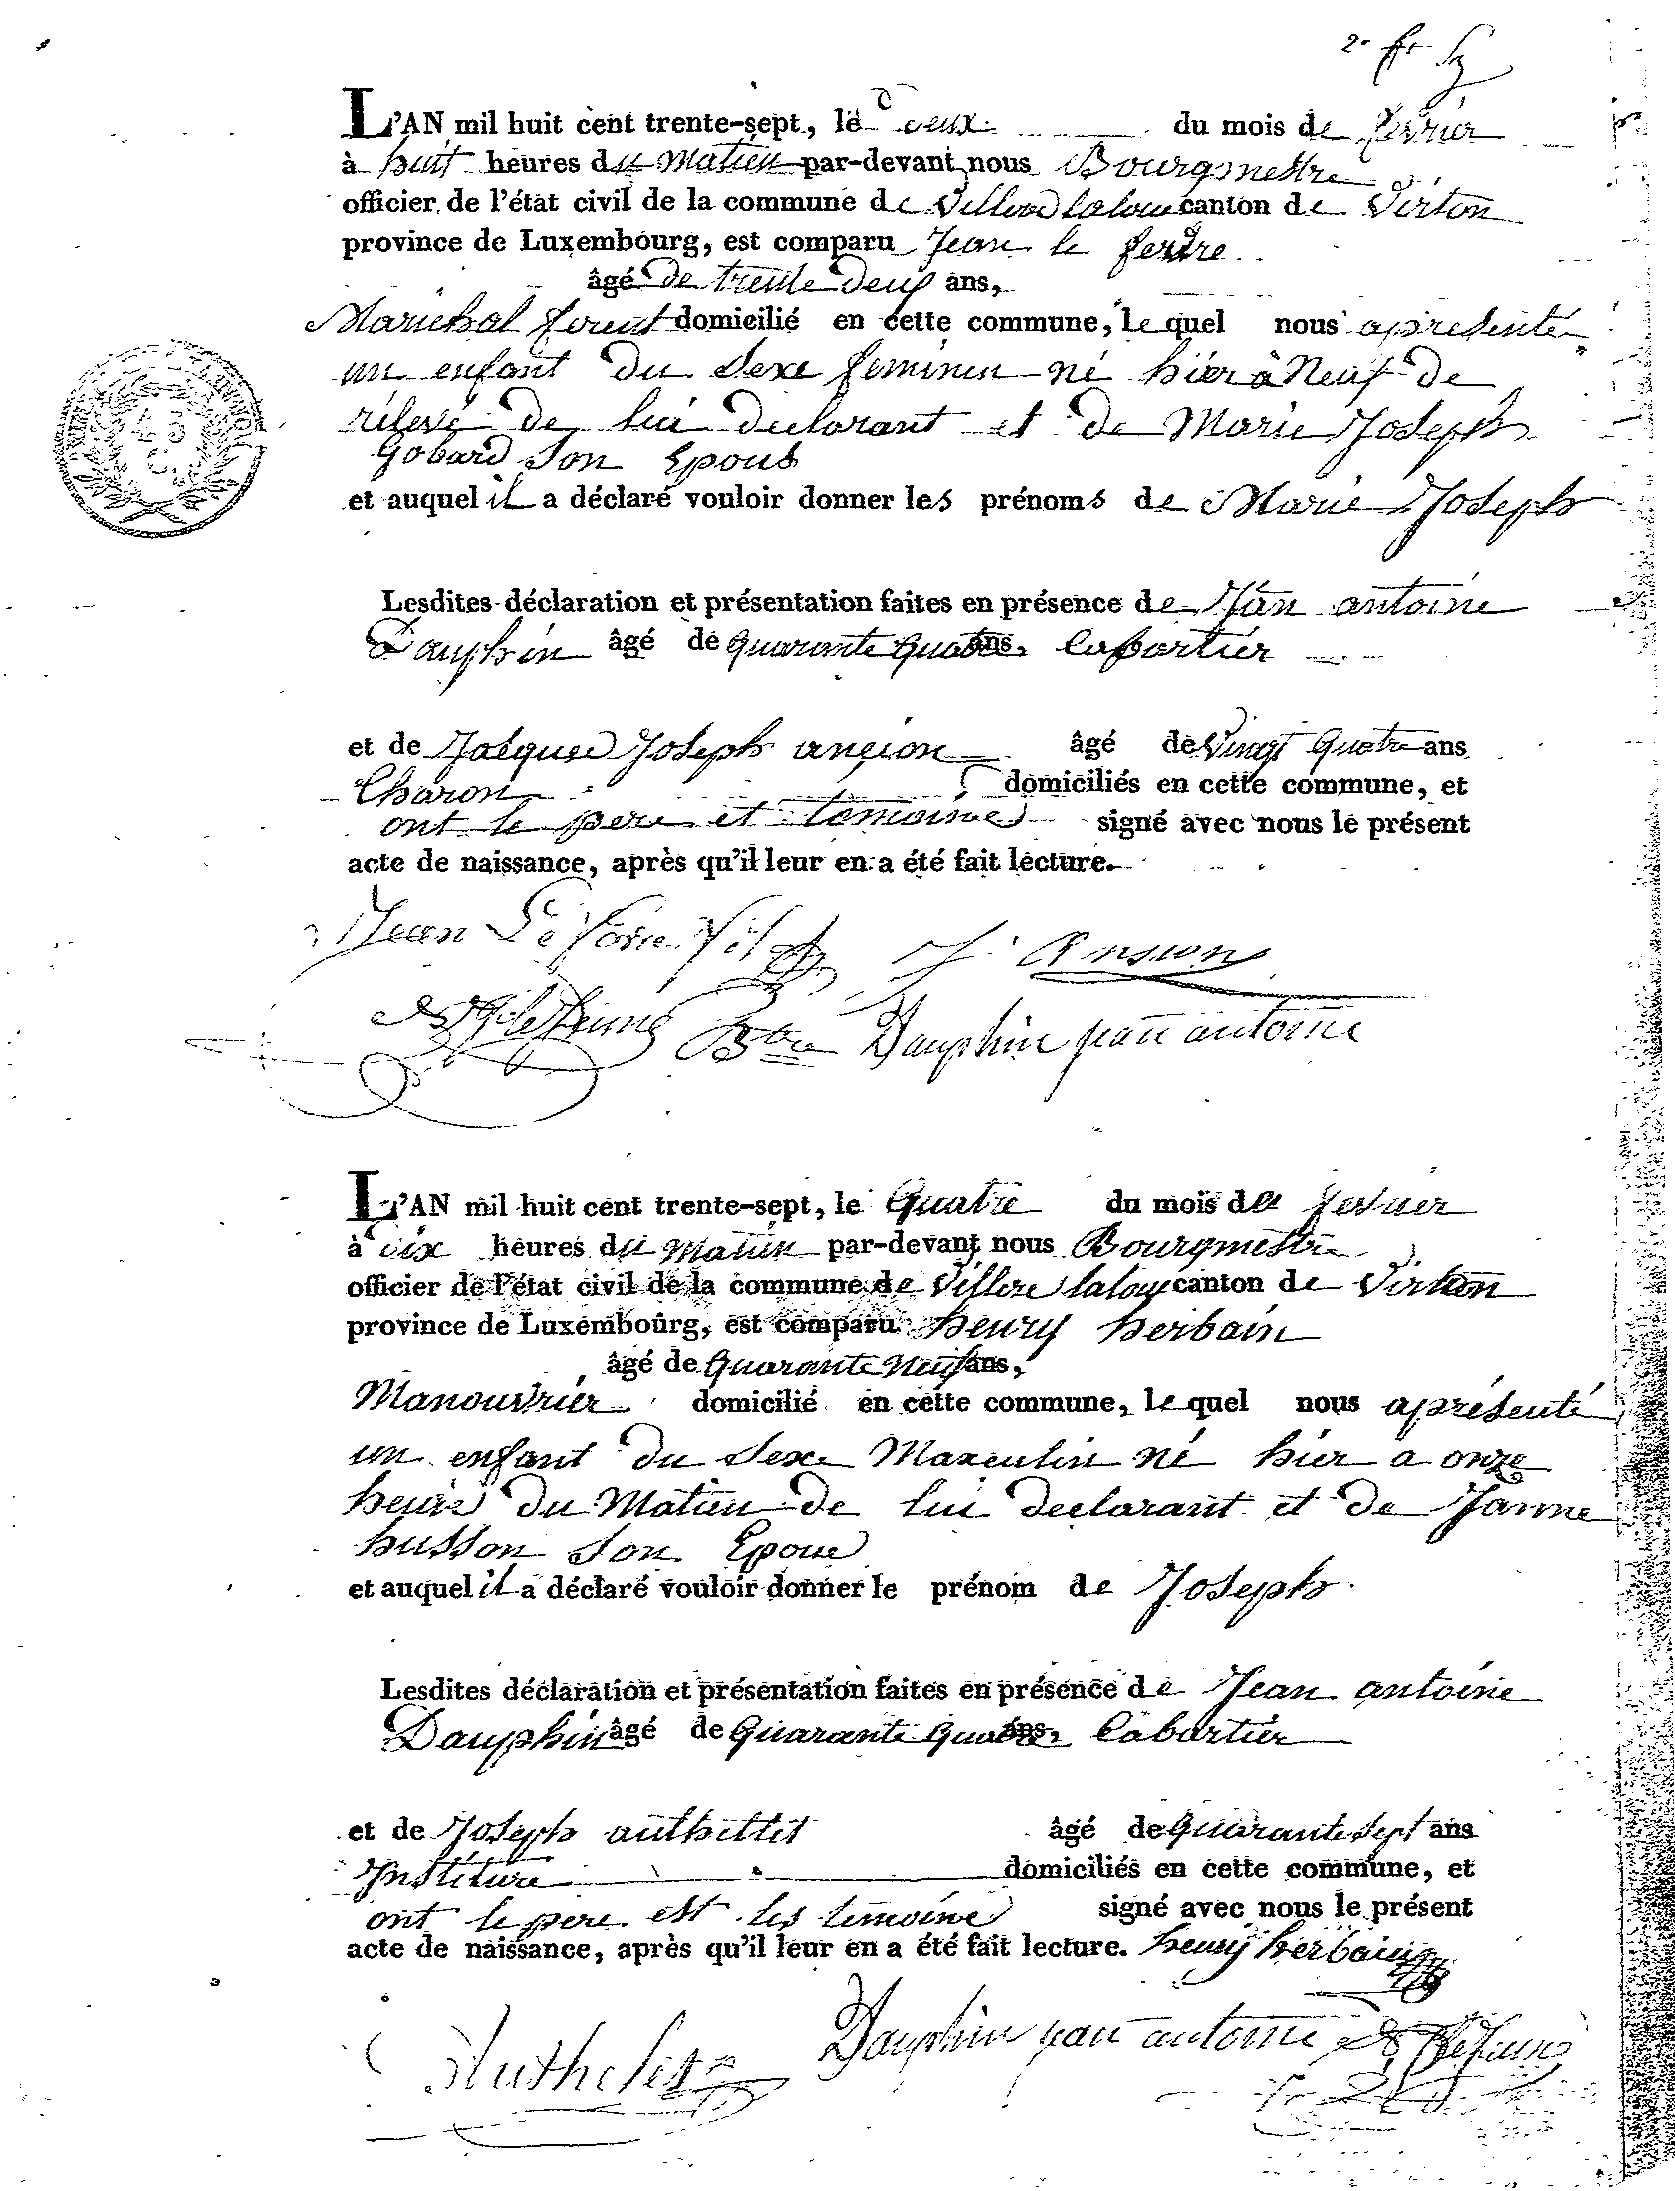 2e
L'AN mil huit cent trente-sept, le deux du mois de fevrier
à huit heures du Matien par-devant nous Bourgmestre
officier de l'état civil de la commune de Villere laloue canton de Virton
province de Luxembourg, est comparu Jean le fevre
âgé de trente deux ans,
Marichal ferent domicilié en cette commune, le quel nous apresenté
un enfant du Sexe feminin né hier à Neuf de
rélevé de lui declarant et de Marie Joseph
Gobard Son Epous
et auquel il a déclaré vouloir donner les prénoms de Marie Joseph
Lesdites déclaration et présentation faites en présence de Jean antoine
Dauphin âgé de Quarante Quatre ans, Cabartier
et de Jacques Joseph ancion âgé de Vingt Quatre ans
Charon domiciliés en cette commune, et
ont le pere et temoines signé avec nous le présent
acte de naissance, après qu'il leur en a été fait lecture.
Jean Le fevre J. Ansion
Dauphin jean antoine
L'AN mil huit cent trente-sept, le Quatre du mois de fevrier
à dix heures du Matien par-devant nous Bourgmestre
officier de l'état civil de la commune de Villere laloue canton de Virton
province de Luxembourg, est comparu henry herbain
âgé de Quarante Neuf ans,
Manouvrier domicilié en cette commune, le quel nous apresenté
un enfant du Sexe Masculin né hier a onze
heures du Matien de lui declarant et de Janne
husson Son Epouse
et auquel il a déclaré vouloir donner le prénom de Joseph
Lesdites déclaration et présentation faites en présence de Jean antoine
Dauphin âgé de Quarante Quatre ans, Cabartier
et de Joseph authelet âgé de Quarante Sept ans
Institure domiciliés en cette commune, et
ont le pere est les temoines signé avec nous le présent
acte de naissance, après qu'il leur en a été fait lecture. henry herbain
Dauphin jean antoine
Authelet